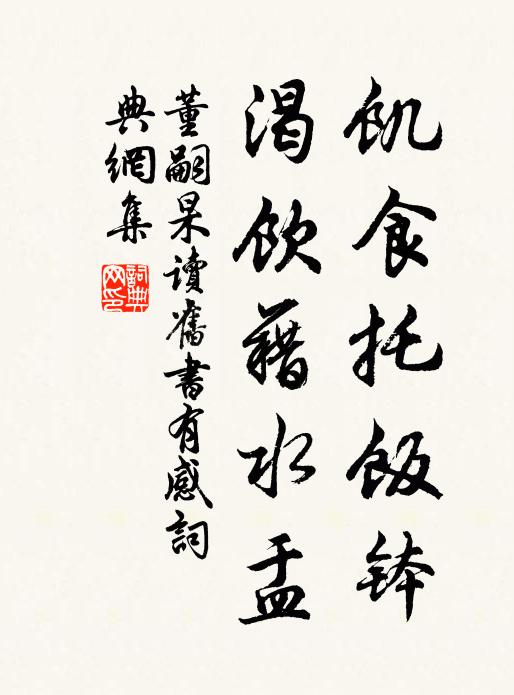 飢食托飯鉢
渴飲藉水盂
董嗣杲讀舊書有感詞
典網集
詞典網印